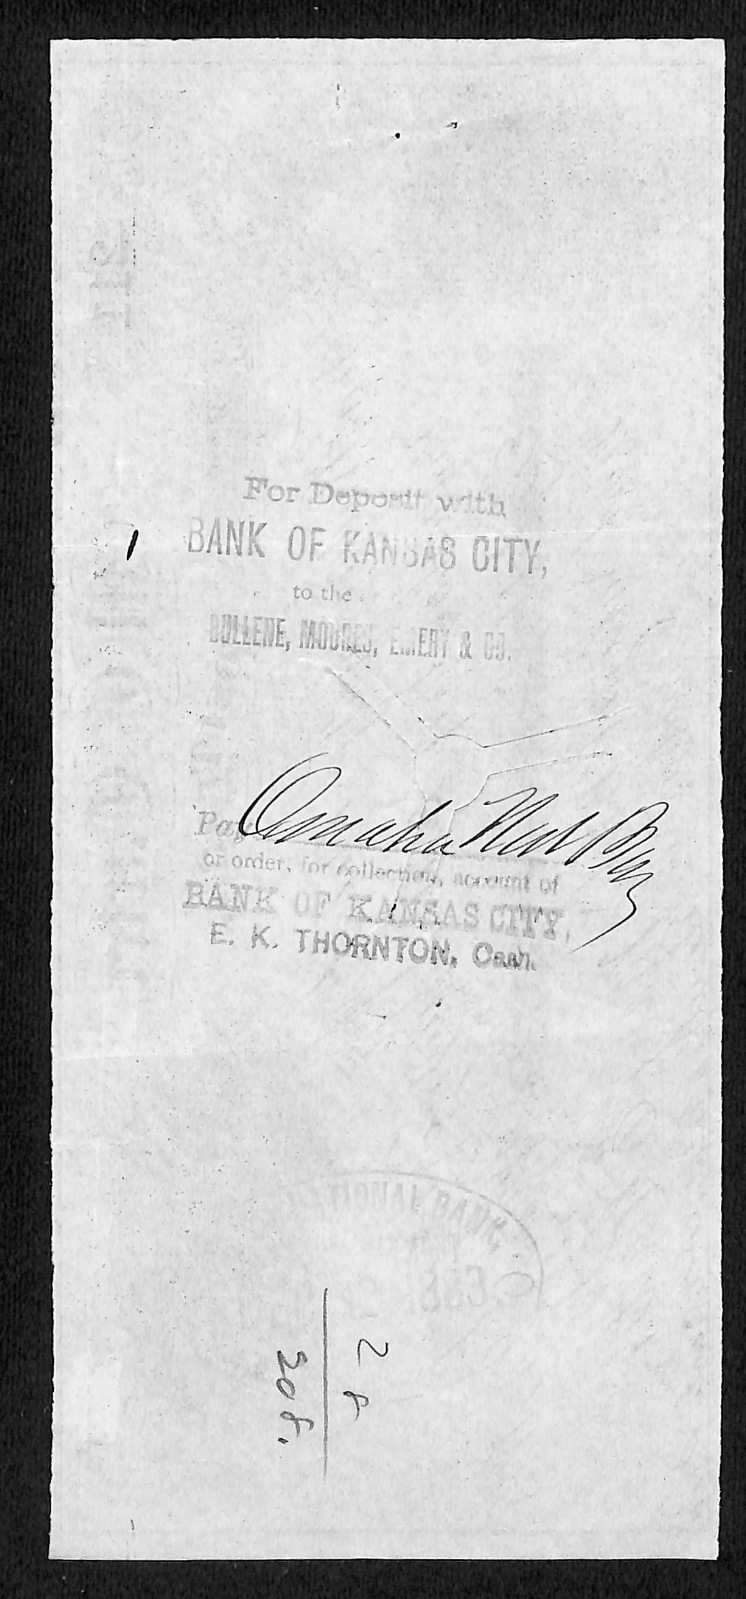 For Deposit with
BANK OF KANSAS CITY,
to the
BULLENE, MOORES, EMERY & CO.
Pay Omaha Nat
or order, for collection, account of
BANK OF KANSAS CITY,
E. K. THORNTON, Cash.
NATIONAL BANK,